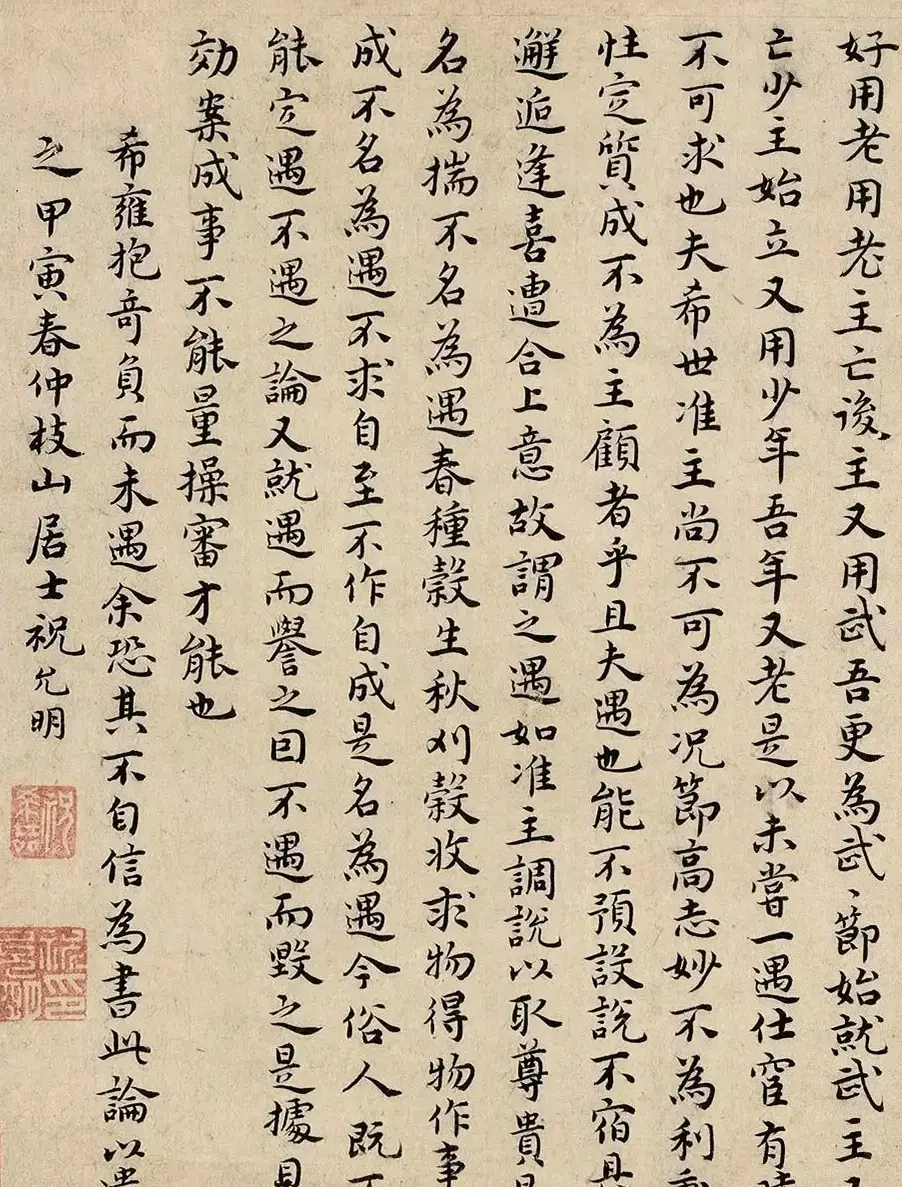 好用老用老主亡後主又用武吾更為武〻節始就武主
亡少主始立又用少年吾年又老是以未嘗一遇仕宦有時
不可求也夫希世准主尚不可為况節高志妙不為利動
性定質成不為主顧者乎且夫遇也能不預設說不宿具
邂逅逢喜遭合上意故謂之遇如准主調說以取尊貴是
名為揣不名為遇春種榖生秋刈榖收求物得物作事
成不名為遇不求自至不作自成是名為遇今俗人既不
能定遇不遇之論又就遇而譽之因不遇而毀之是據見
効案成事不能量操審才能也
希雍抱奇負而未遇余恐其不自信為書此論以遺
之甲寅春仲枝山居士祝允明